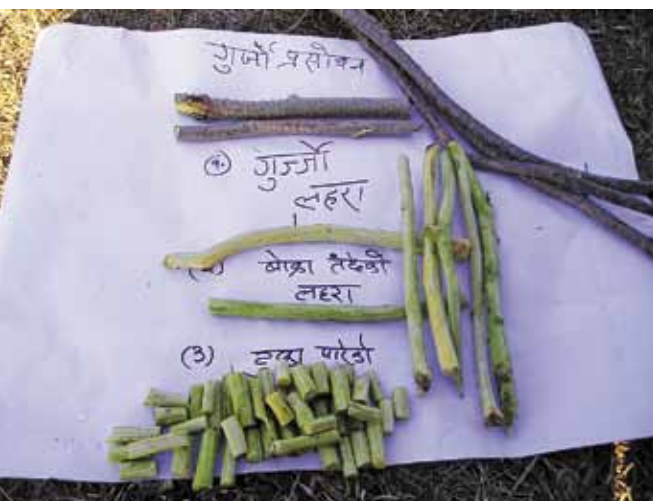 गुर्जो प्रसोधन
(१) गुर्ज्जो
लहरा
(२) बोक्रा तछेको
लहरा
(३) टुक्रा पारेको